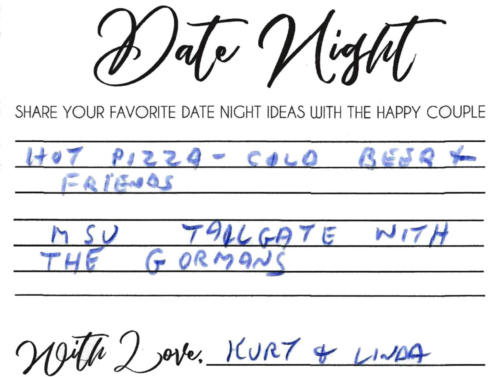 Date Night
SHARE YOUR FAVORITE DATE NIGHT IDEAS WITH THE HAPPY COUPLE
HOT PIZZA - COLD BEER &
FRIENDS
MSU TAILGATE WITH
THE GORMANS
With Love, KURT & LINDA